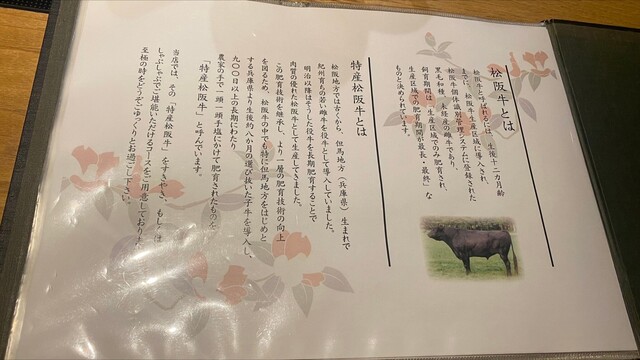 松阪牛とは
松阪牛と呼ばれるには、生後十二カ月齢
までに、松阪牛生産区域に導入され、
松阪牛個体識別管理システムに登録された
黒毛和種、未経産の雌牛であり、
飼育期間は「生産区域でのみ肥育され、
生産区域での肥育期間が最長・最終」な
ものと決められています。
特産松阪牛とは
松阪地方では古くから、但馬地方（兵庫県）生まれで
紀州育ちの若い雌牛を役牛として導入していました。
明治以降はそうした役牛を長期肥育することで
肉質の優れた松阪牛として生産してきました。
この肥育技術を継承し、より一層の肥育技術の向上
を図るため、松阪牛の中でも特に但馬地方をはじめと
する兵庫県より生後約八か月の選び抜いた子牛を導入し、
九〇〇日以上の長期にわたり、
農家の手で一頭一頭手塩にかけて肥育されたものを
「特産松阪牛」と呼んでいます。
当店では、その「特産松阪牛」をすきやき、もしくは
しゃぶしゃぶで ご堪能いただけるコースをご用意しております。
至極の時をどうぞごゆっくりとお過ごし下さい。